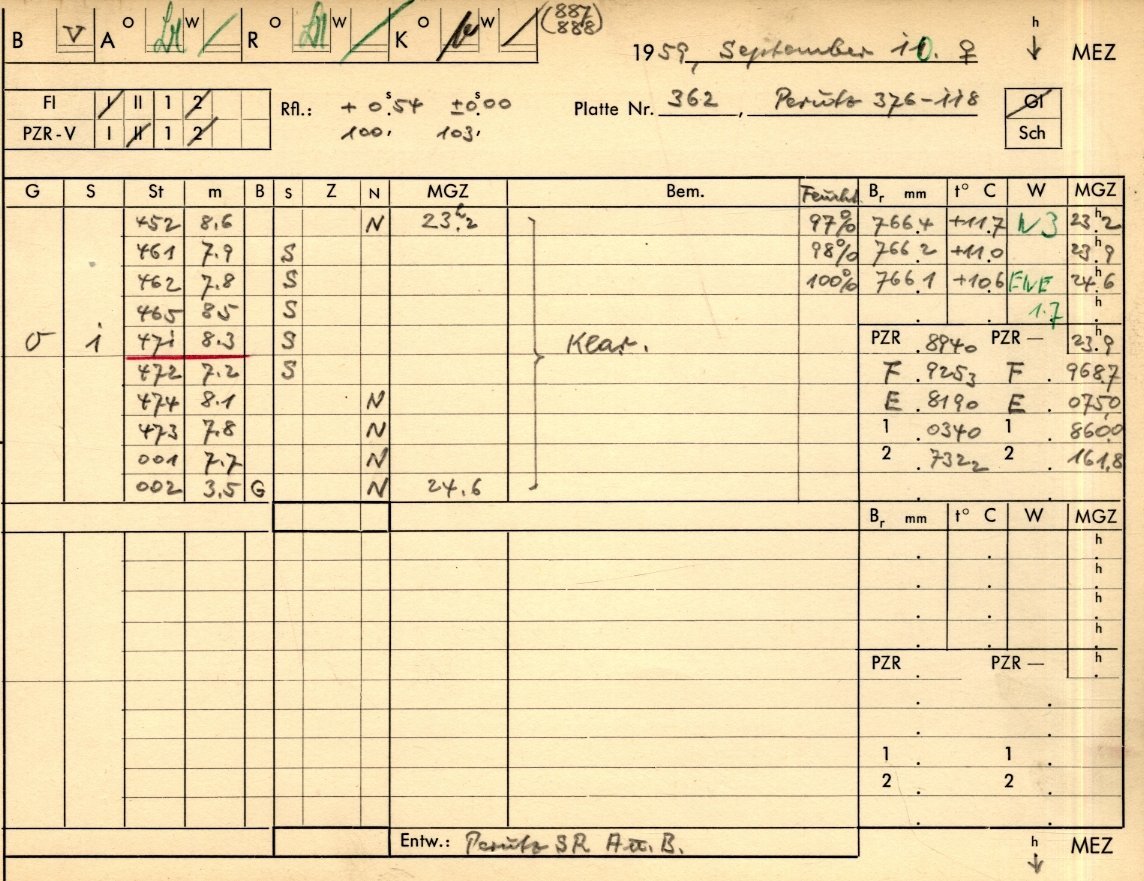 B V A O W R O W K O W (887 888)
1959, September 10. ♀ h ↓ MEZ
FI I II 1 2
PZR-V I II 1 2
Rfl.: + 0.ˢ54 ±0.ˢ00
100, 103,
Platte Nr. 362, Perutz 376-118
Gl
Sch
G S St m B S Z N MGZ Bem. Feucht. Bᵣ mm t° C W MGZ
452 8.6 N 23.ʰ2 97% 766.4 +11.7 N 3 23.ʰ2
461 7.9 S 98% 766.2 +11.0 23.ʰ9
462 7.8 S 100% 766.1 +10.6 ENE 24.ʰ6
465 8.5 S 1.7 h
σ i 471 8.3 S Klar. PZR .8940 PZR — 23.ʰ9
472 7.2 S F .9253 F . 968.7
474 8.1 N E .8190 E . 075.0
473 7.8 N 1 .0340 1 . 860.0
001 7.7 N 2 .7322 2 . 161.8
002 3.5 G N 24.6
Bᵣ mm t° C W MGZ
h
h
h
h
PZR PZR — h
1 1
2 2
Entw.: Perutz SR Att. B.
h ↓ MEZ